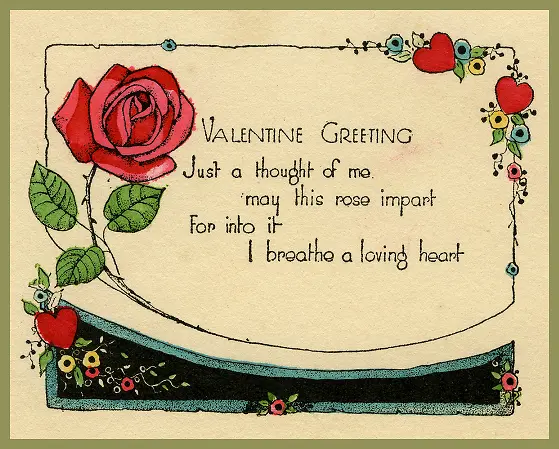 VALENTINE GREETING
Just a thought of me.
may this rose impart
For into it
I breathe a loving heart